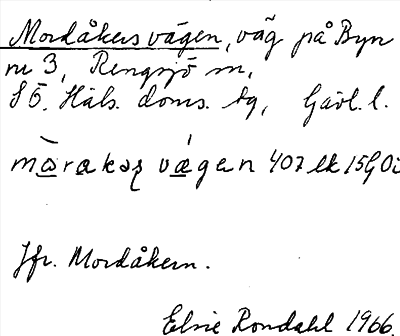 Mordåkersvägen, väg på Byn
nr 3, Rengsjö sn,
SÖ. Häls. doms. tg, Gävl. l.
mòrakeʂ vǽgen 407 lk 15G0i
Jfr. Mordåkern.
Elsie Rondahl 1966.